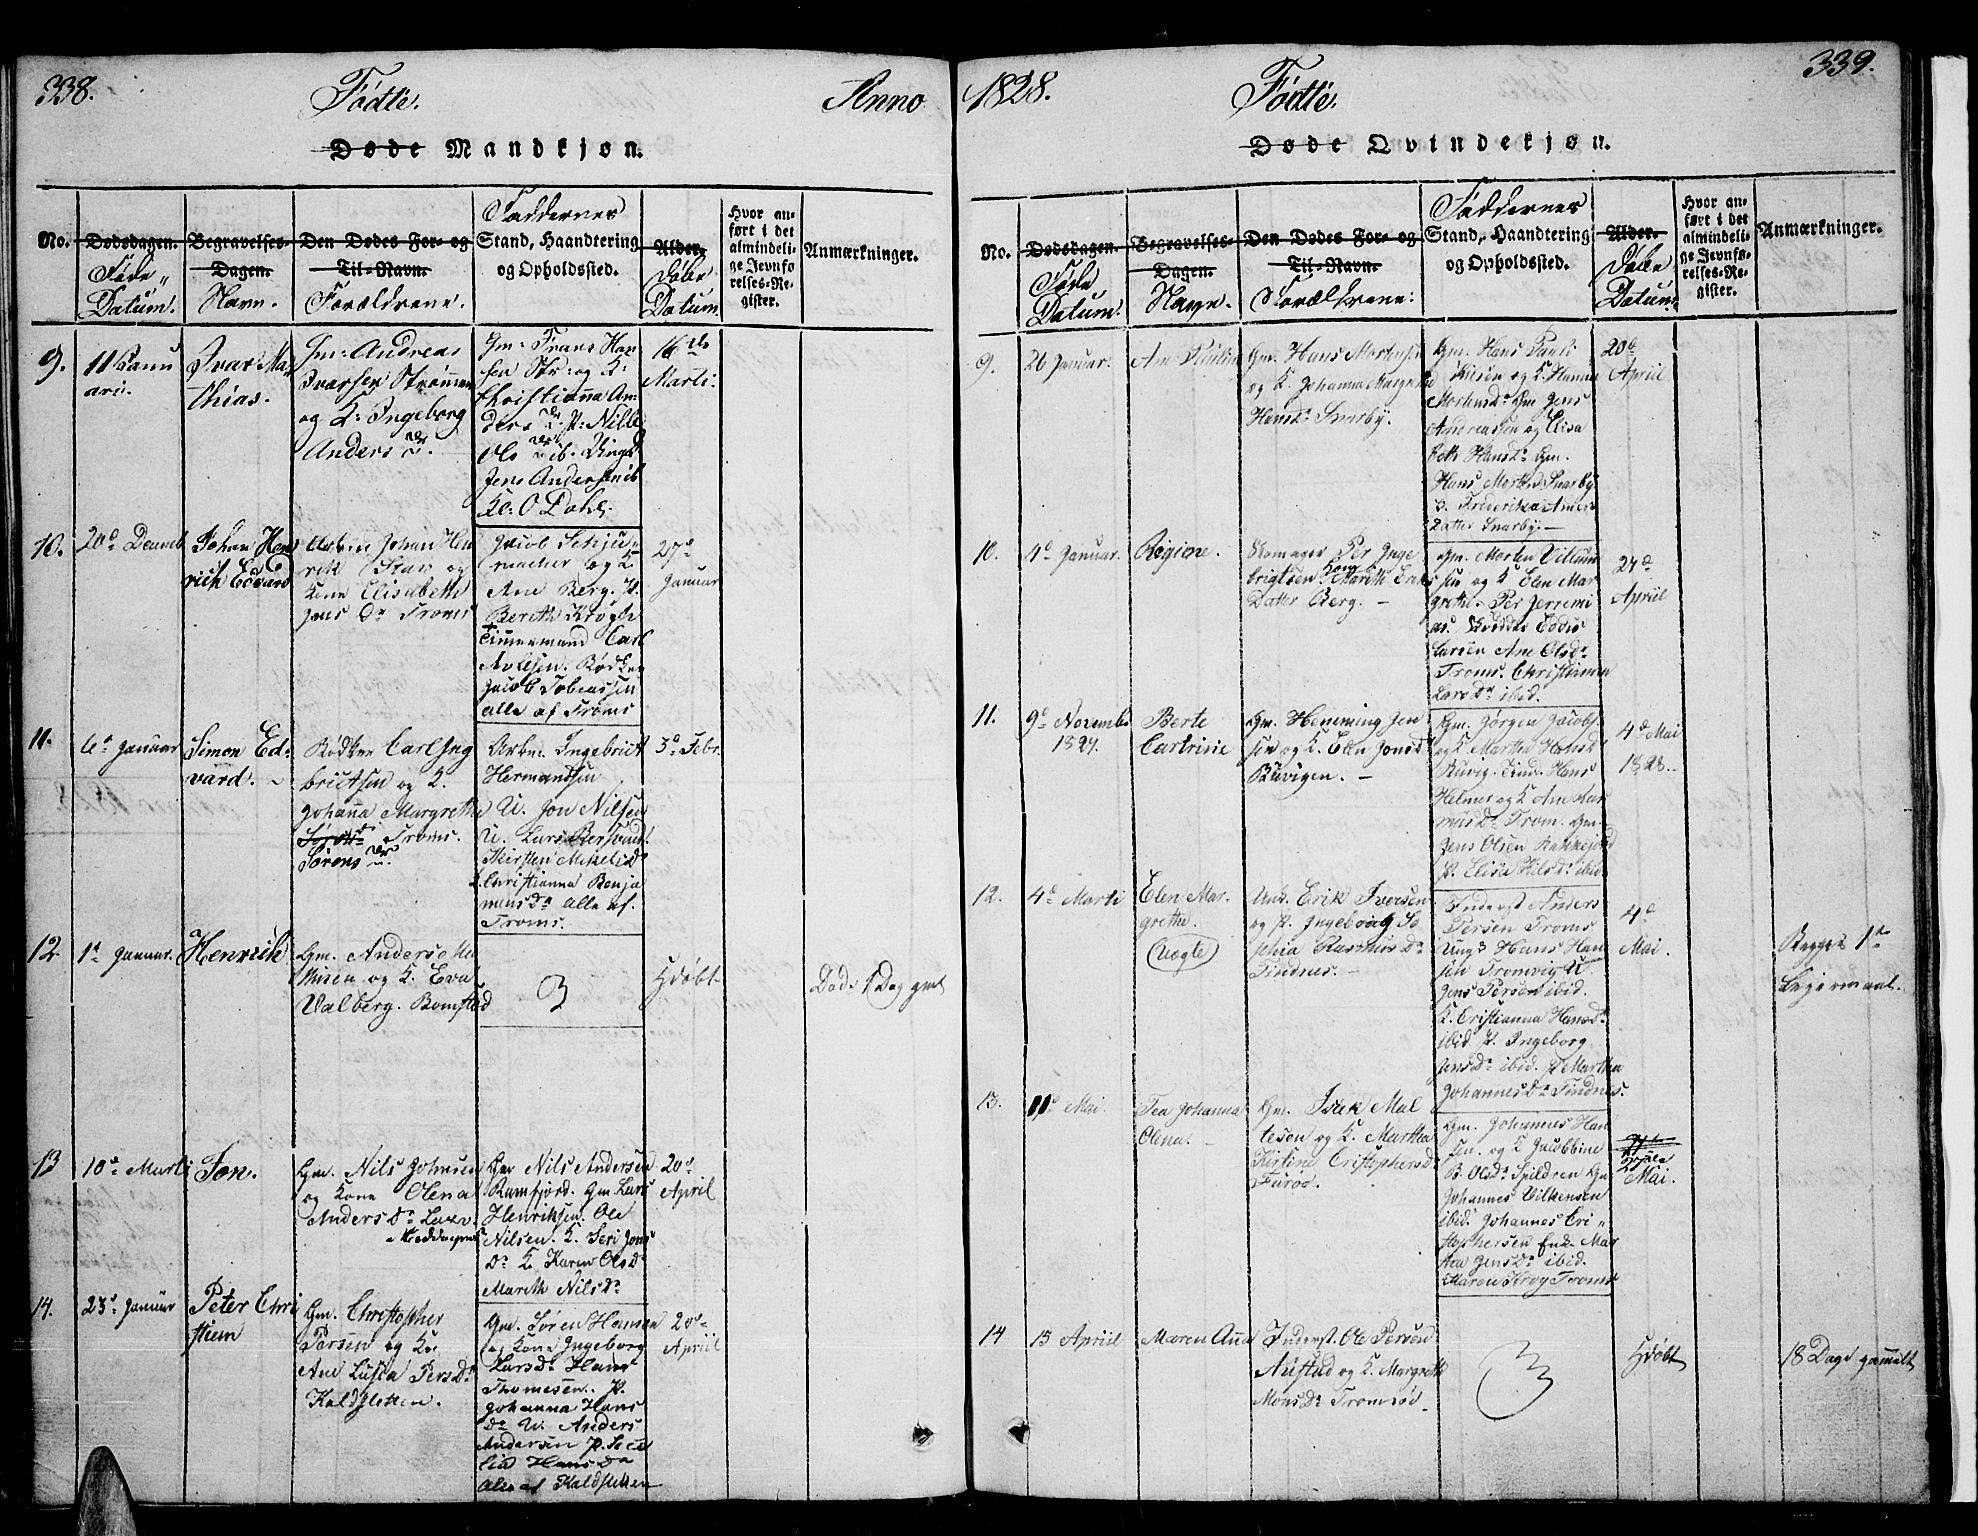 338.
Födte.
Anno
Døde Mandkjøn.
No.
Dødsdagen.
Føde-
Datum.
Begravelses-
Dagen.
Navn.
Den Dødes For- og
Til-Navn.
Forældrene.
Faddernes
Stand, Haandtering
og Opholdssted.
Alder.
Døbe
Datum.
Hvor an-
ført i det
almindeli-
ge Jevnfø-
relses-Re-
gister.
Anmærkninger.
9.
11 Janu
ari.
Ivar Ma-
thias.
Gm: Andreas
Ivarsen Strømen
og K: Ingeborg
Anders
Gm: Frans Han-
sen Str: og K:
Christianna An-
ders
Jens Andersen ib
O Dahl.
16de
Marti.
10.
20d Decemb
Johan Hen
rich Edvard
Johan Hen
rik
og
Kone Elisabeth
Jens Dr Troms
Jacob Schju-
macher og K
Ane Berg. P.
Berith Krogh
Timmermand Carl
Bødker
Jacob Tobiassen
alle af Troms
27d
Januar
11.
6d Januar
Simon Ed-
vard.
Bødker Carl Ing
brictsen og K.
Johanna Margrethe
Troms.
Sørens
Arbm. Ingebrict
Hermandsen
U. Jon Nilsen
U. Lars
Kirsten
Christianna Benja
mins Dr alle af
Troms.
3d Febr.
12.
1d Januar.
Henrich
Gm. Anders
og K. Eva
Valberg.
Hdøbt
Døde 1 Dag gml
13
10d Marti
Jon.
Gm. Nils Johnsen
og Kone Olena
Anders Dr
Gm Nils Andersen
Ramfjord. Gm Lars
Henriksen. Ole
Nilsen. K. Seri Jons
Dr K Karen Ols Dr
Marith Nils Dr
20d
April
14.
23d Januar
Peter Chri
stian
Gm. Christopher
Persen og Ko:
Ane Lusia Pers Dr
Kaldsletten.
Gm. Søren Hansen
og Kone Ingeborg
Lars Dr Hans
Thomesen. P.
Johanna Hans
Dr U. Anders
Andersen P.
Hans Dr
Ale af Kaldsletten
20d
April
1828.
Födte.
339.
Døde Qvindekjøn.
No.
Dødsdagen.
Føde
Datum.
Begravelses-
Dagen.
Navn.
Den Dødes For- og
Til-Navn.
Forældrene:
Faddernes
Stand, Haandtering
og Opholdssted.
Alder.
Døbe
Datum.
Hvor an-
ført i det
almindeli-
ge Jevnfø-
relses-Re-
gister.
Anmærkninger.
9.
26 Januar.
Ane Paulin
Gm. Hans Mortensen
og K. Johanna Margrethe
Hans Dr Snarby.
Gm. Hans Pauli
Nilsen og K. Hanna
Mortens Dr Gm Jens
Andreassen og Elisa
beth Hans Dr Gm.
Hans Morten Snarby
P. Frederika Anders
Datter Snarby.
20d
April
10.
4d Januar.
Regine.
Skomager Per Inge
brigtsen Kone Marith Eriks
Datter Berg.
Gm. Morten Villum
sen og K Elen Mar
grethe. Per Jerremi
as.
Larsen Ane Ols Dr
Troms. Christianna
Lars Dr ibid.
27d
April
11.
9d Novembr
1827.
Berte
Catrine
Gm. Hemming Jen
sen og K. Elen Jons Dr
Buvigen.
Gm. Jørgen Jacobs.
og K Martha Hans D
Buvig. Hans
Helmer og K Ane Ras
mus Dr Trom. Gm.
Jens Olsen
P. Elisa Nils Dr ibid
4d Mai
1828.
12.
4d Marti
Elen Mar
grethe.
Uægte
Unk. Erik Iversen
og P. Ingeborg So
phia Rasmus Dr
Tindnes.
Inderst Anders
Persen Troms
Ungk Hans Han
sen Tromvig U
Jens Persen ibid.
K. Cristianna Hans D
ibid P. Ingeborg
Jens Dr ibid. P Martha
Johannes Dr Tindnes.
4d
Mai.
Begges 1te
Leiermaal.
13.
11d Mai.
Tea Johanna
Olena.
Gm. Isak Mal
tesen og K. Martha
Kirstine Cristophers Dr
Gm. Johannes Han
sen. og K Jacobbine
B. Ols Dr Spildren Gm
Johannes Vilkensen
ibid. Johannes Cri-
stophersen Enk. Mar
tha Jens Dr ibid.
Maren Krog Troms
Mai.
14
15 April
Maren Ana
Inderst. Ole Persen
Austad og K. Margrethe
Mons Dr Tromsø
Hdøbt
18 Dage gammelt